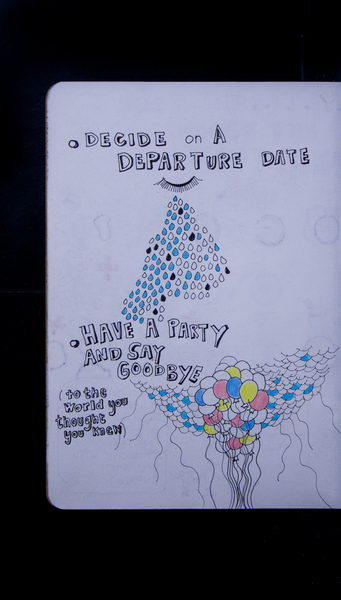 • DECIDE on A
DEPARTURE DATE
• HAVE A PARTY
AND SAY
GOODBYE
(to the
world you
thought
you knew)